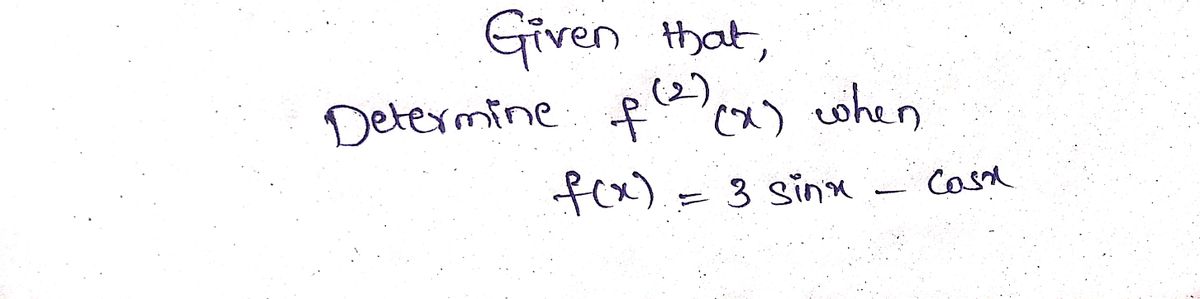 Given that,
Determine f⁽²⁾(x) when
f(x) = 3 sinx - cosx